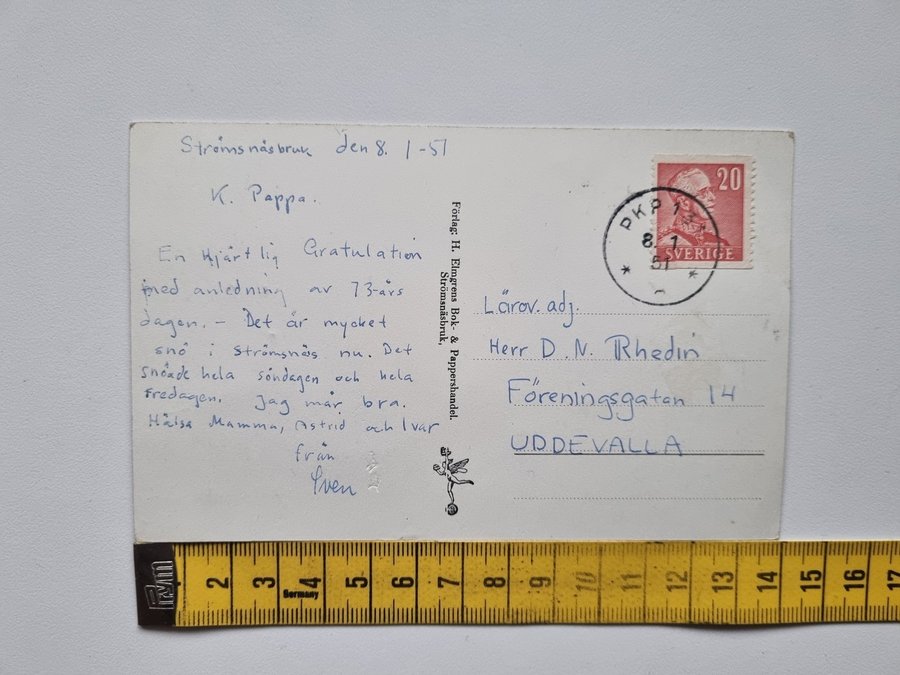 Strömsnäsbruk den 8. 1 -51
K. Pappa.
En Hjärtlig Gratulation
med anledning av 73-års
dagen. - Det är mycket
snö i Strömsnäs nu. Det
snöade hela söndagen och hela
Fredagen. Jag mår bra.
Hälsa Mamma, Astrid och Ivar
från
Sven
Förlag: H. Elmgrens Bok- & Pappershandel.
Strömsnäsbruk,
20
SVERIGE
PKP 131
8. 1
51
Lärov. adj.
Herr D. N. Rhedin
Föreningsgatan 14
UDDEVALLA
2 3 4 5 6 7 8 9 10 11 12 13 14 15 16 17
Germany